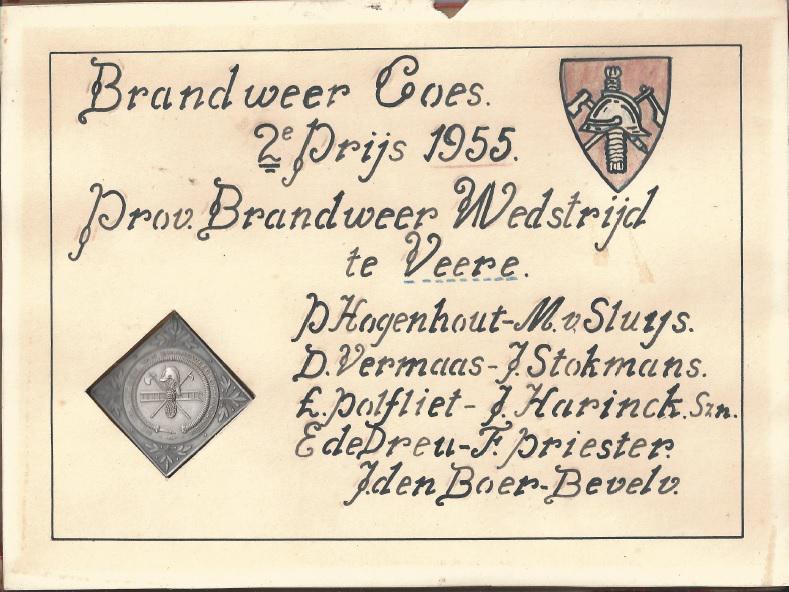 Brandweer Goes.
2e Prijs 1955.
Prov. Brandweer Wedstrijd
te Veere.
P Hogenhout-M.v.Sluijs.
D.Vermaas-J.Stokmans.
L.Polfliet-J.Harinck.Szn.
E de Dreu-F.Priester.
J.den Boer-Bevelv.